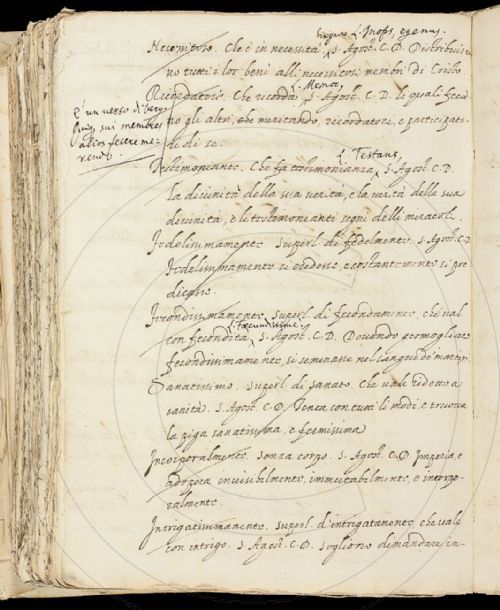 bisognoso. L. Inops, egenus.
Necessitoso. Che è in necessità. S. Agost. C. D. Distribuiro
no tutti i lor beni alli necessitosi membri di Cristo
L. Memor,
Ricordatore. Che ricorda. S. Agost. C. D. li quali
no gli altri, meritando, ricordatori, e partecipato
ri di se.
è un verso di
sui memores
alios fecere me
rendo.
L. Testans,
Testimoniante. Che fa testimonianza. S. Agost. C. D.
La divinità della sua verità, e la verità della sua
divinità, e li testimonianti segni delli miracoli.
Fedelissimamente. Superl. di fedelmente. S. Agost. C. D.
Fedelissimamente si credesse, e costantemente si pre
dicasse.
Fecondissimamente. Superl. di fecondamente, che val
L. fecundissime.
con fecondità. S. Agost. C. D. Dovendo germogliare
fecondissimamente, si seminasse nel sangue de' martiri.
Sanatissimo. Superl. di sanato. Che vale ridotto a
sanità. S. Agost. C. D. Tenta con tutti li modi, e truova
la piga sanatissima, e fermissima
Incorporalmente. Senza corpo. S. Agost. C. D. Imperia, e
adopera invisibilmente, immutabilmente, e incorpo-
ralmente.
Intrigatissimamente. Superl. d'intrigatamente, che vale
con intrigo. S. Agost. C. D. Sogliono dimandare ca-